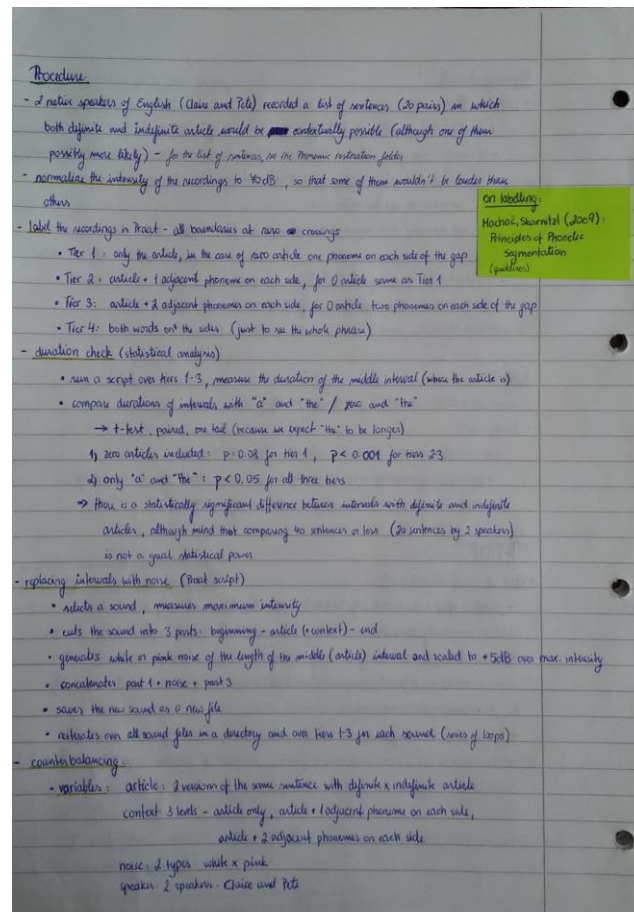 Procedure
- 2 native speakers of English (Claire and Pete) recorded a list of sentences (20 pairs) in which
both definite and indefinite article would be contextually possible (although one of them
possibly more likely) - for the list of sentences, see the Phonemic restoration folder
- normalize the intensity of the recordings to 70 dB, so that some of them wouldn't be louder than
others
on labelling:
Machač, Skarnitzl (2009):
Principles of Phonetic
Segmentation
(guidelines)
- label the recordings in Praat - all boundaries at zero crossings
• Tier 1: only the article, in the case of zero article one phoneme on each side of the gap
• Tier 2: article + 1 adjacent phoneme on each side, for 0 article same as Tier 1
• Tier 3: article + 2 adjacent phonemes on each side, for 0 article two phonemes on each side of the gap
• Tier 4: both words on the sides (just to see the whole phrase)
- duration check (statistical analysis)
• run a script over tiers 1-3, measure the duration of the middle interval (where the article is)
• compare durations of intervals with "a" and "the" / zero and "the"
→ t-test, paired, one tail (because we expect "the" to be longer)
1) zero articles included: p = 0.08 for tier 1, p < 0.001 for tiers 2-3
2) only "a" and "the": p < 0.05 for all three tiers
⇒ there is a statistically significant difference between intervals with definite and indefinite
articles, although mind that comparing 40 sentences or less (20 sentences by 2 speakers)
is not a great statistical power
- replacing intervals with noise (Praat script)
• selects a sound, measures maximum intensity
• cuts the sound into 3 parts: beginning - article (+context) - end
• generates white or pink noise of the length of the middle (article) interval and scaled to +5dB over max. intensity
• concatenates part 1 + noise + part 3
• saves the new sound as a new file
• reiterates over all sound files in a directory and over tiers 1-3 for each sound (series of loops)
- counterbalancing:
• variables: article: 2 versions of the same sentence with definite x indefinite article
context 3 levels - article only, article + 1 adjacent phoneme on each side,
article + 2 adjacent phonemes on each side
noise: 2 types white x pink
speaker: 2 speakers - Claire and Pete